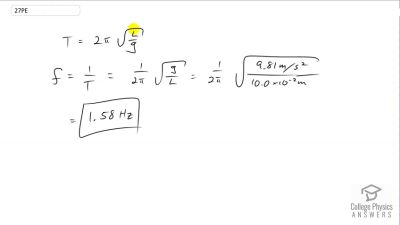 27PE
T = 2π √(L/g)
f = 1/T = 1/2π √(g/L) = 1/2π √(9.81 m/s² / 10.0 × 10⁻² m)
= 1.58 Hz
College Physics
ANSWERS